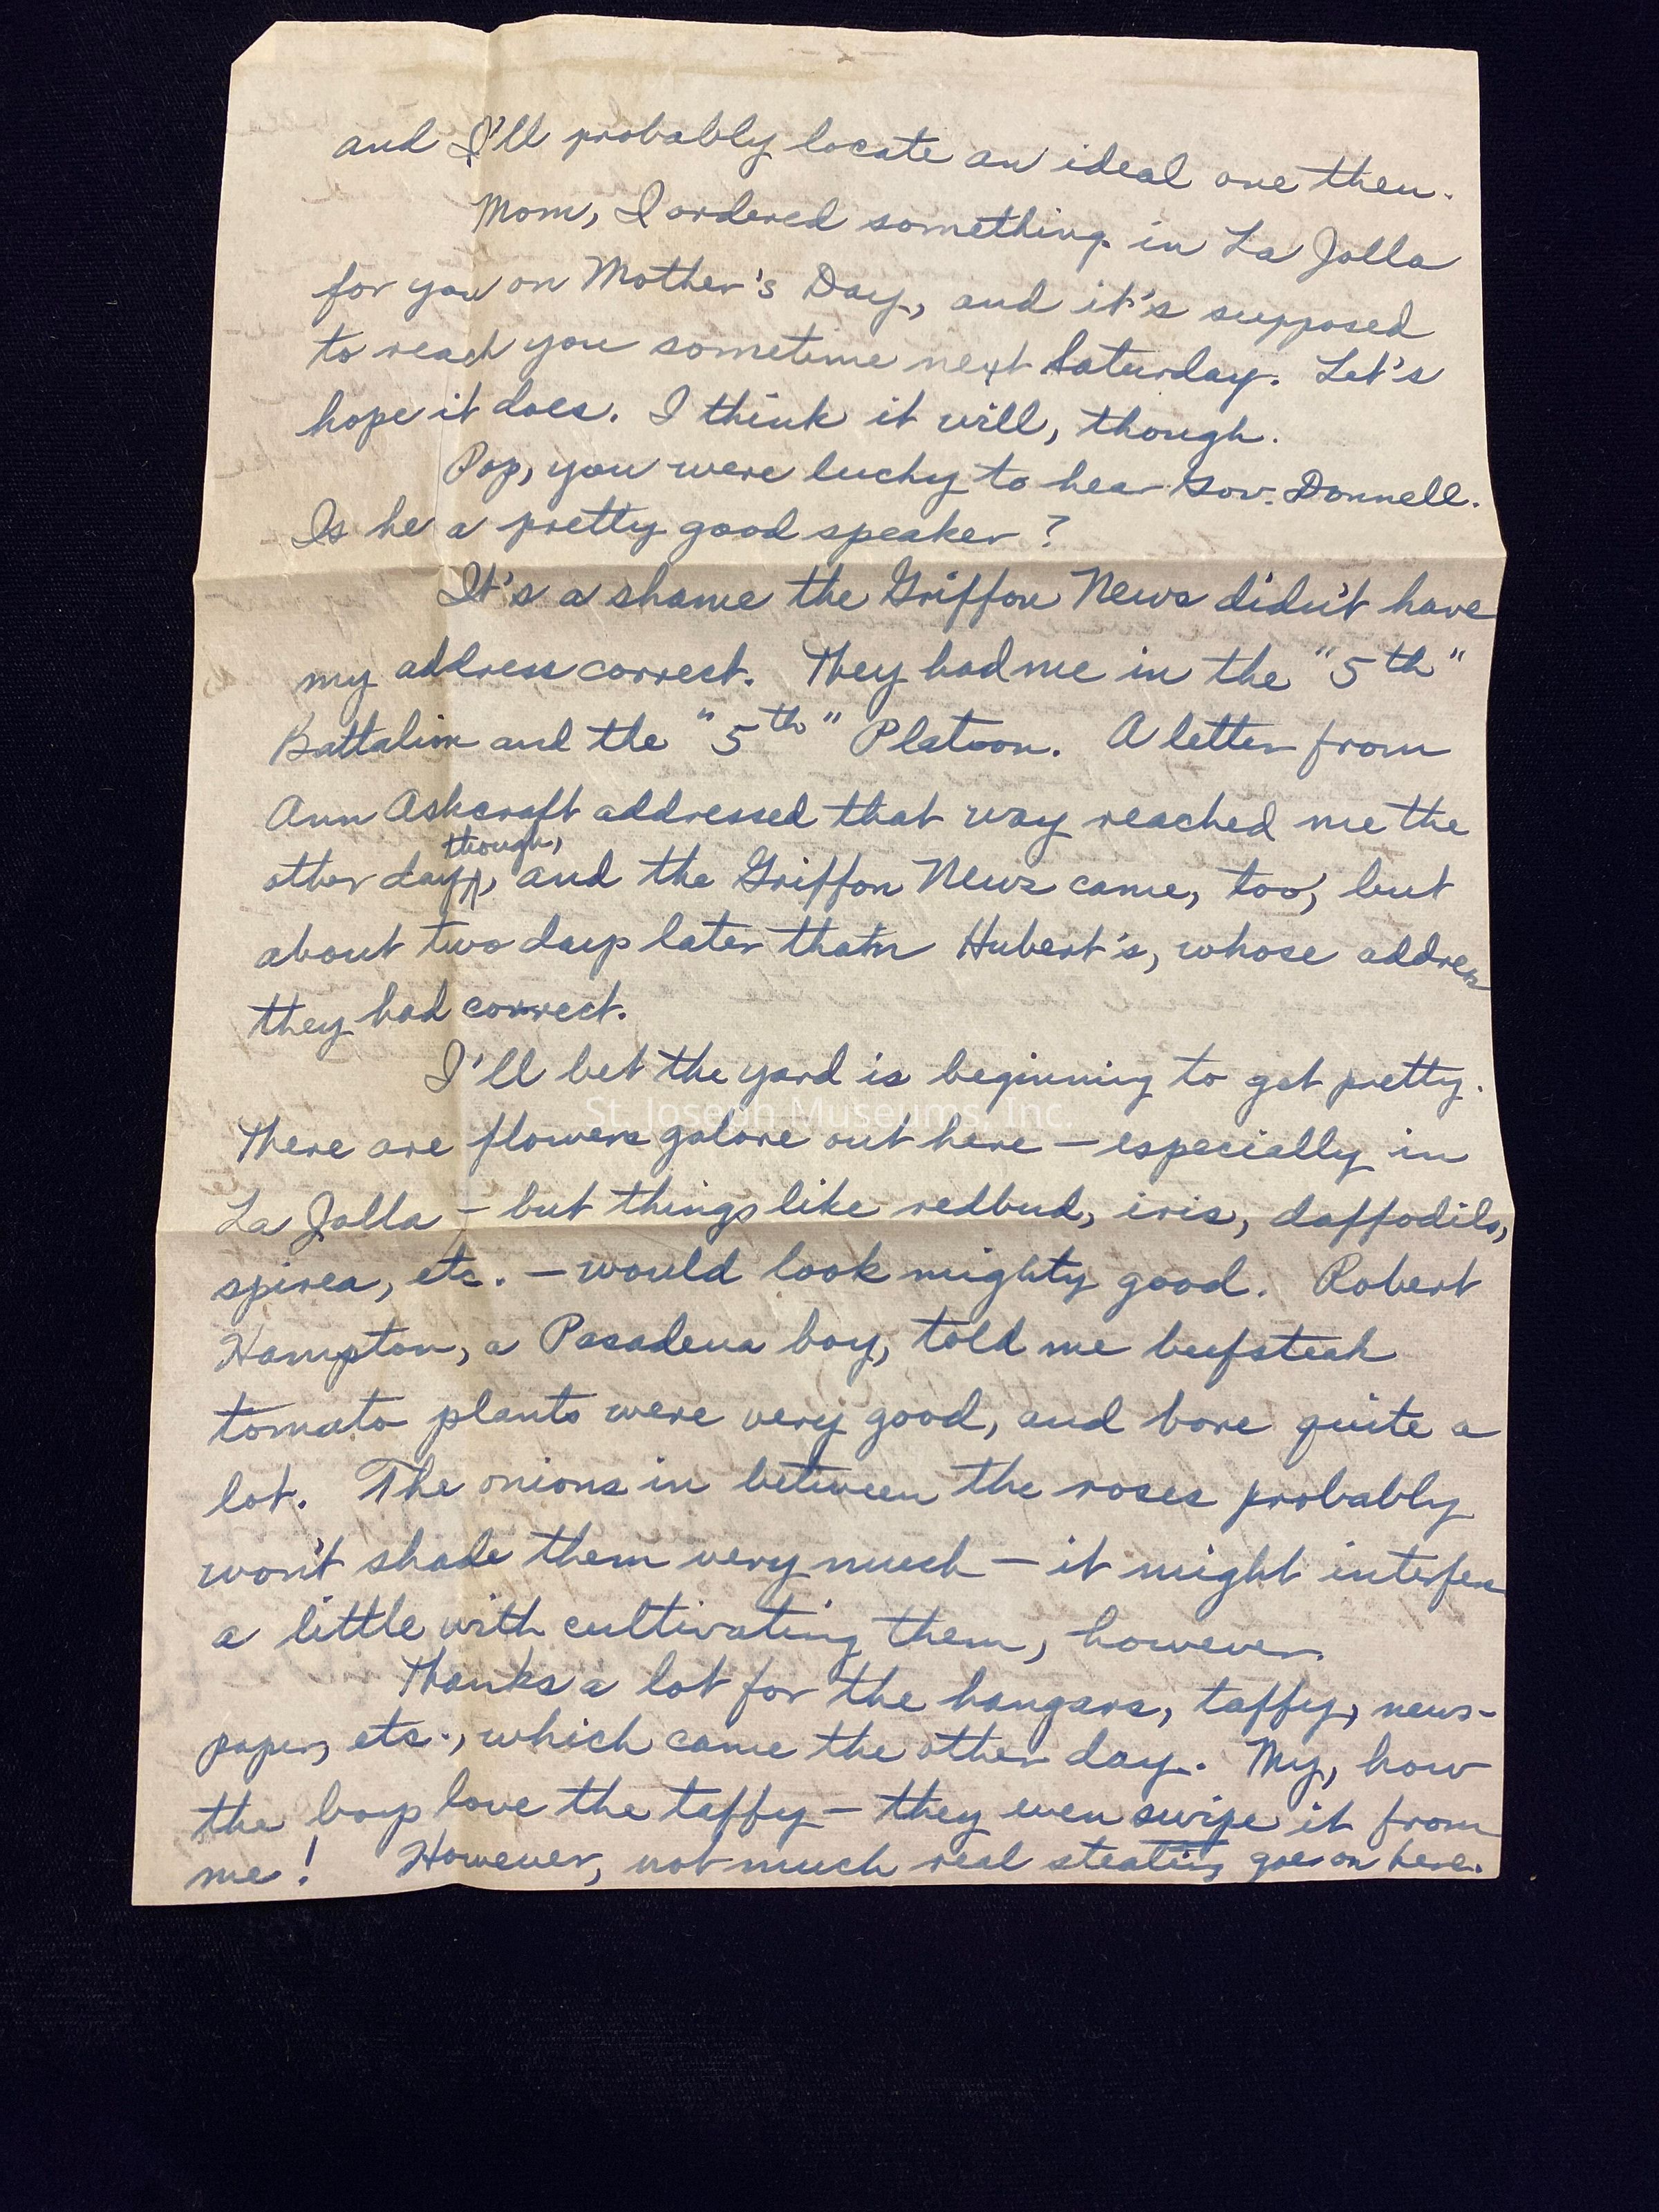 and I'll probably locate an ideal one then.
Mom, I ordered something in La Jolla
for you on Mother's Day, and it's supposed
to reach you sometime next Saturday. Let's
hope it does. I think it will, though.
Pop, you were lucky to hear Gov. Donnell.
Is he a pretty good speaker?
It's a shame the Griffon News didn't have
my address correct. They had me in the "5th"
Battalion and the "5th" Platoon. A letter from
Ann Ashcraft addressed that way reached me the
though,
other day, and the Griffon News came, too, but
about two days later than Hubert's, whose address
they had correct.
I'll bet the yard is beginning to get pretty.
St. Joseph Museums, Inc.
There are flowers galore out here — especially in
La Jolla — but things like redbud, iris, daffodils,
spirea, etc. — would look mighty good. Robert
Hampton, a Pasadena boy, told me beefsteak
tomato plants were very good, and bore quite a
lot. The onions in between the roses probably
won't shade them very much — it might interfere
a little with cultivating them, however.
Thanks a lot for the hangars, taffy, news-
paper, etc., which came the other day. My, how
the boys love the taffy — they even swipe it from
me! However, not much real stealing goes on here.